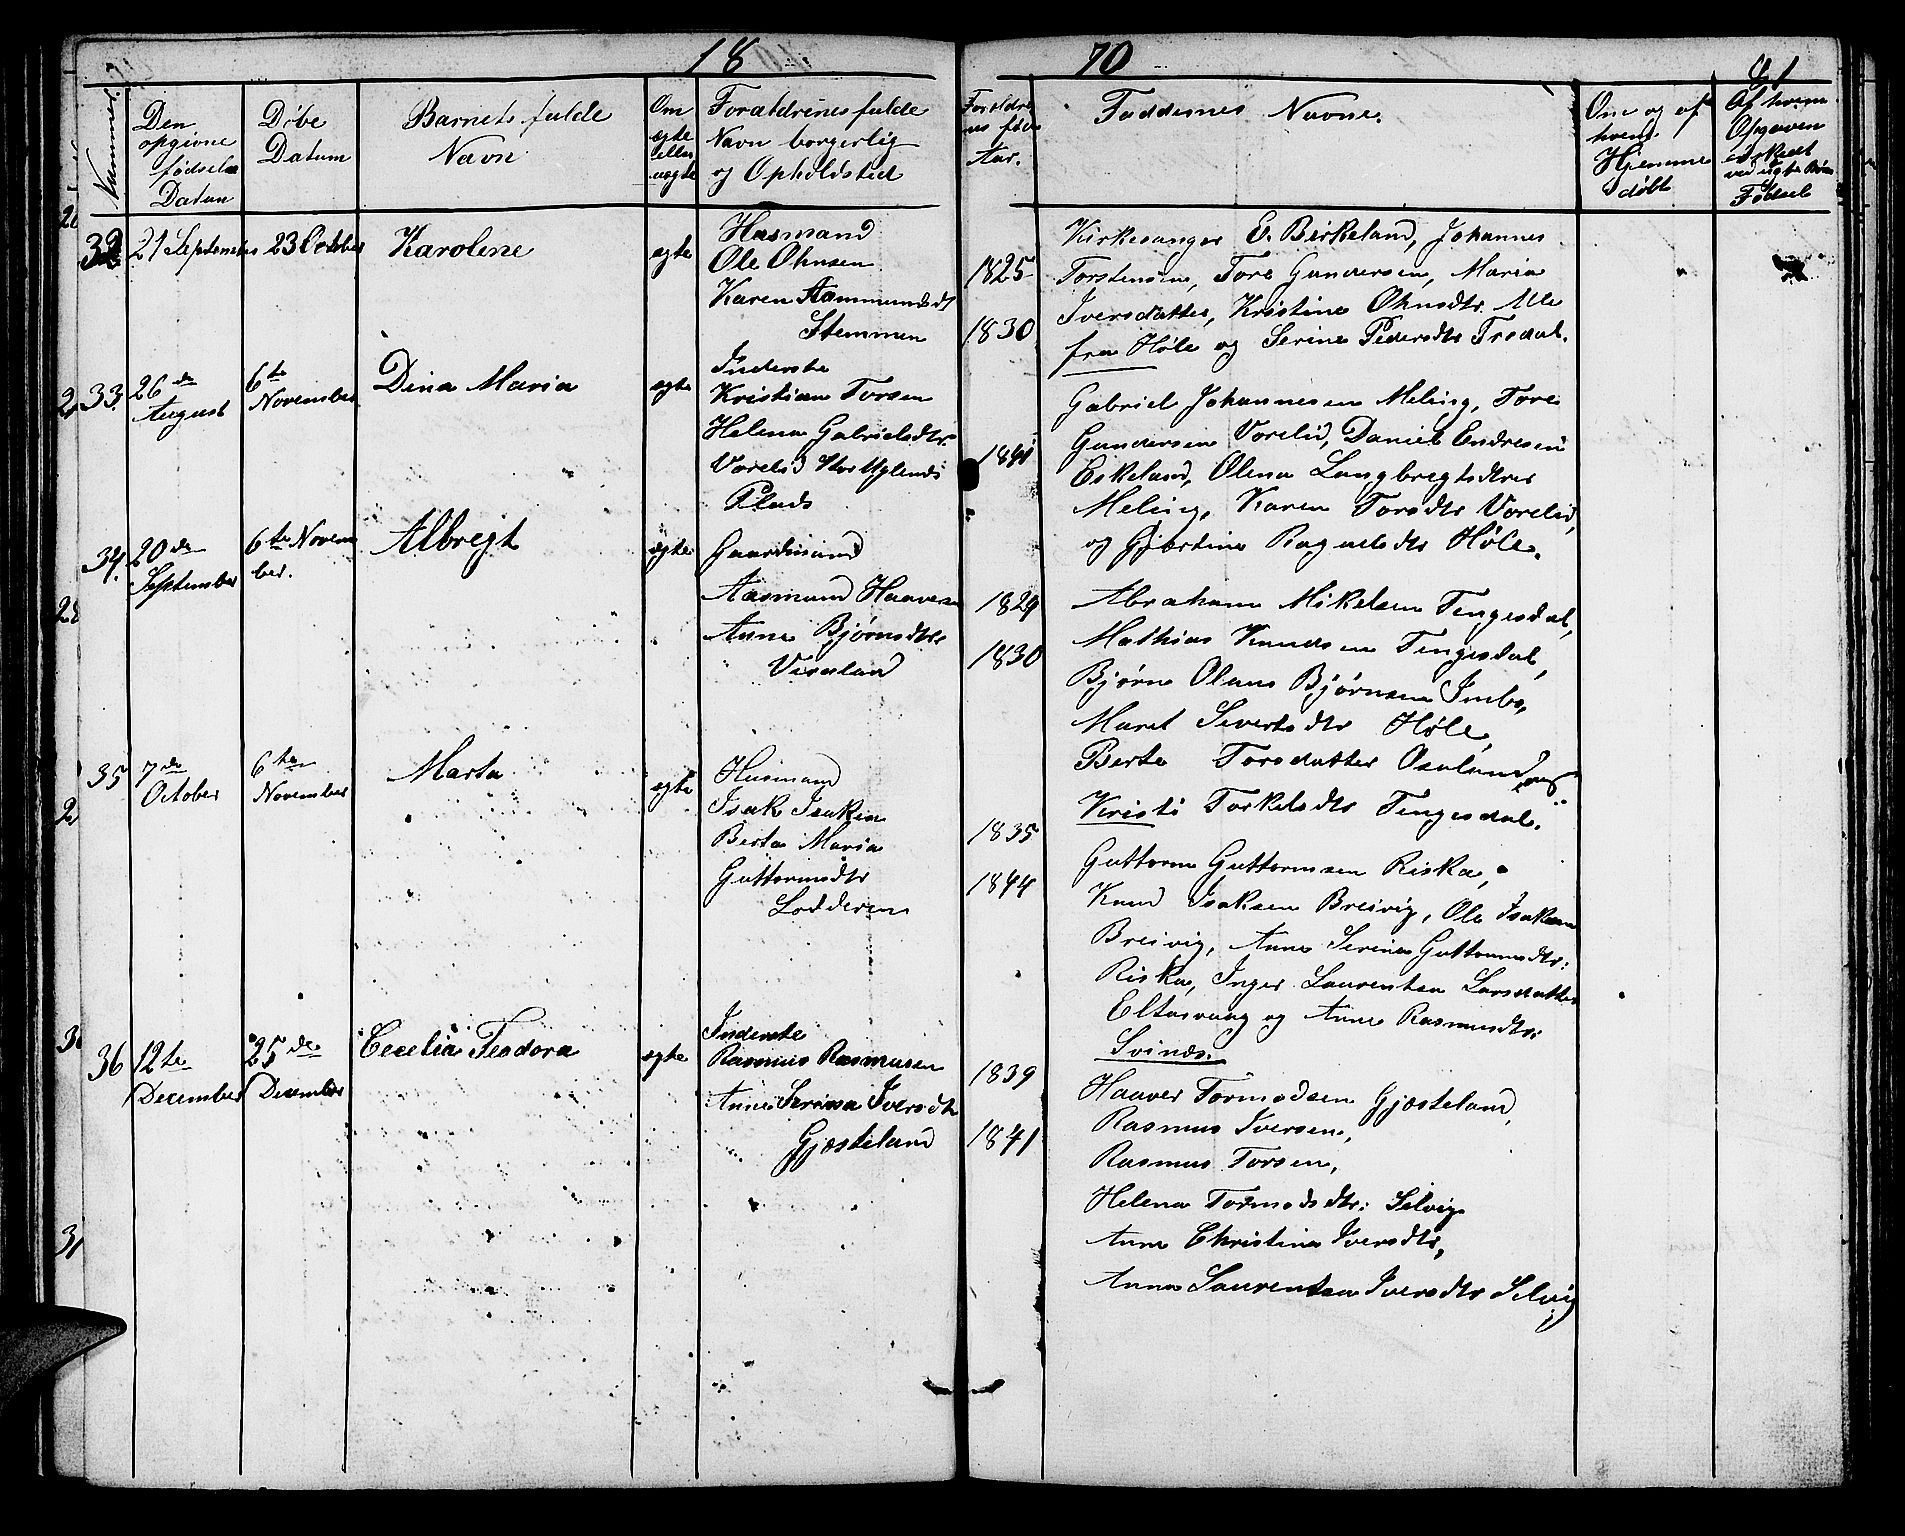 18 70
Nummer.
Den
opgivne
fødsels
Datum
Døbe
Datum
Barnets fulde
Navn
Om
ægte
eller
uægte
Forældrenes fulde
Navn borgerlig
og Opholdsted
Forældre
nes føde
Aar.
Faddernes Navne.
Om og af
hvem
Hjemme
døbt
Af hvem
Opgaven
Fødsel
32
21 September
23 October
Karolene
ægte
Husmand
Ole Ohnsen
Karen Aamundsdt
Stemmen
1825
1830
Kirkesanger E. Birkeland, Johannes
Torstensen, Tore Gundersen, Maria
Iversdatter, Kristine Ohnsdtr. Alle
fra Høle og Serine Pedersdtr Tredal.
33.
26de
August
6te
November
Dina Maria
ægte
Inderste
Kristian Torsen
Helena Gabrielsdtr
Vorelid Plads
1841
Gabriel Johannesen Meling, Tore
Gundersen Vorelid, Daniel Endresen
Eskeland, Olena Langbregtsdtr
Meling, Karen Torsdtr Vorelid,
og Gjertine Ragnaldsdtr Høle.
34.
20de
September
6te Novem
ber.
Albregt
ægte
Gaardmand
Aasmund Haaversen
Anne Bjørnsdtr
Viseland
1829
1830
Abraham Mikelsen Tengesdal,
Mathias Knudsen Tengesdal,
Bjørn Olaus Bjørnsen Imbs,
Maret Sivertsdtr Høle,
Berte Torsdatter Osaland
Kristi Torkelsdtr Tengesdal.
35
7de
October
6te
November
Marta
ægte
Husmand
Isak Isaksen
Berta Maria
Guttormsdtr
Lodderen
1835
1844
Guttorm Guttormsen Riska,
Knud Isaksen Breivig, Ole Isaksen
Breivig, Anne Serine Guttormsdtr:
Riska, Inger Laurentsa Larsdatter
Eltarvaag og Anne Rasmusdtr:
Svines.
36
12te
December
25de
December
Cecelia Teodora
ægte
Inderste
Rasmus Rasmusen
Anne Serina Iversdtr
Gjesteland
1839
1841
Haaver Tormodsen Gjesteland,
Rasmus Iversen,
Rasmus Torsen,
Helena Tormodsdtr: Selvig
Anne Christine Iversdtr,
Anne Laurentsa Iversdtr Selvig